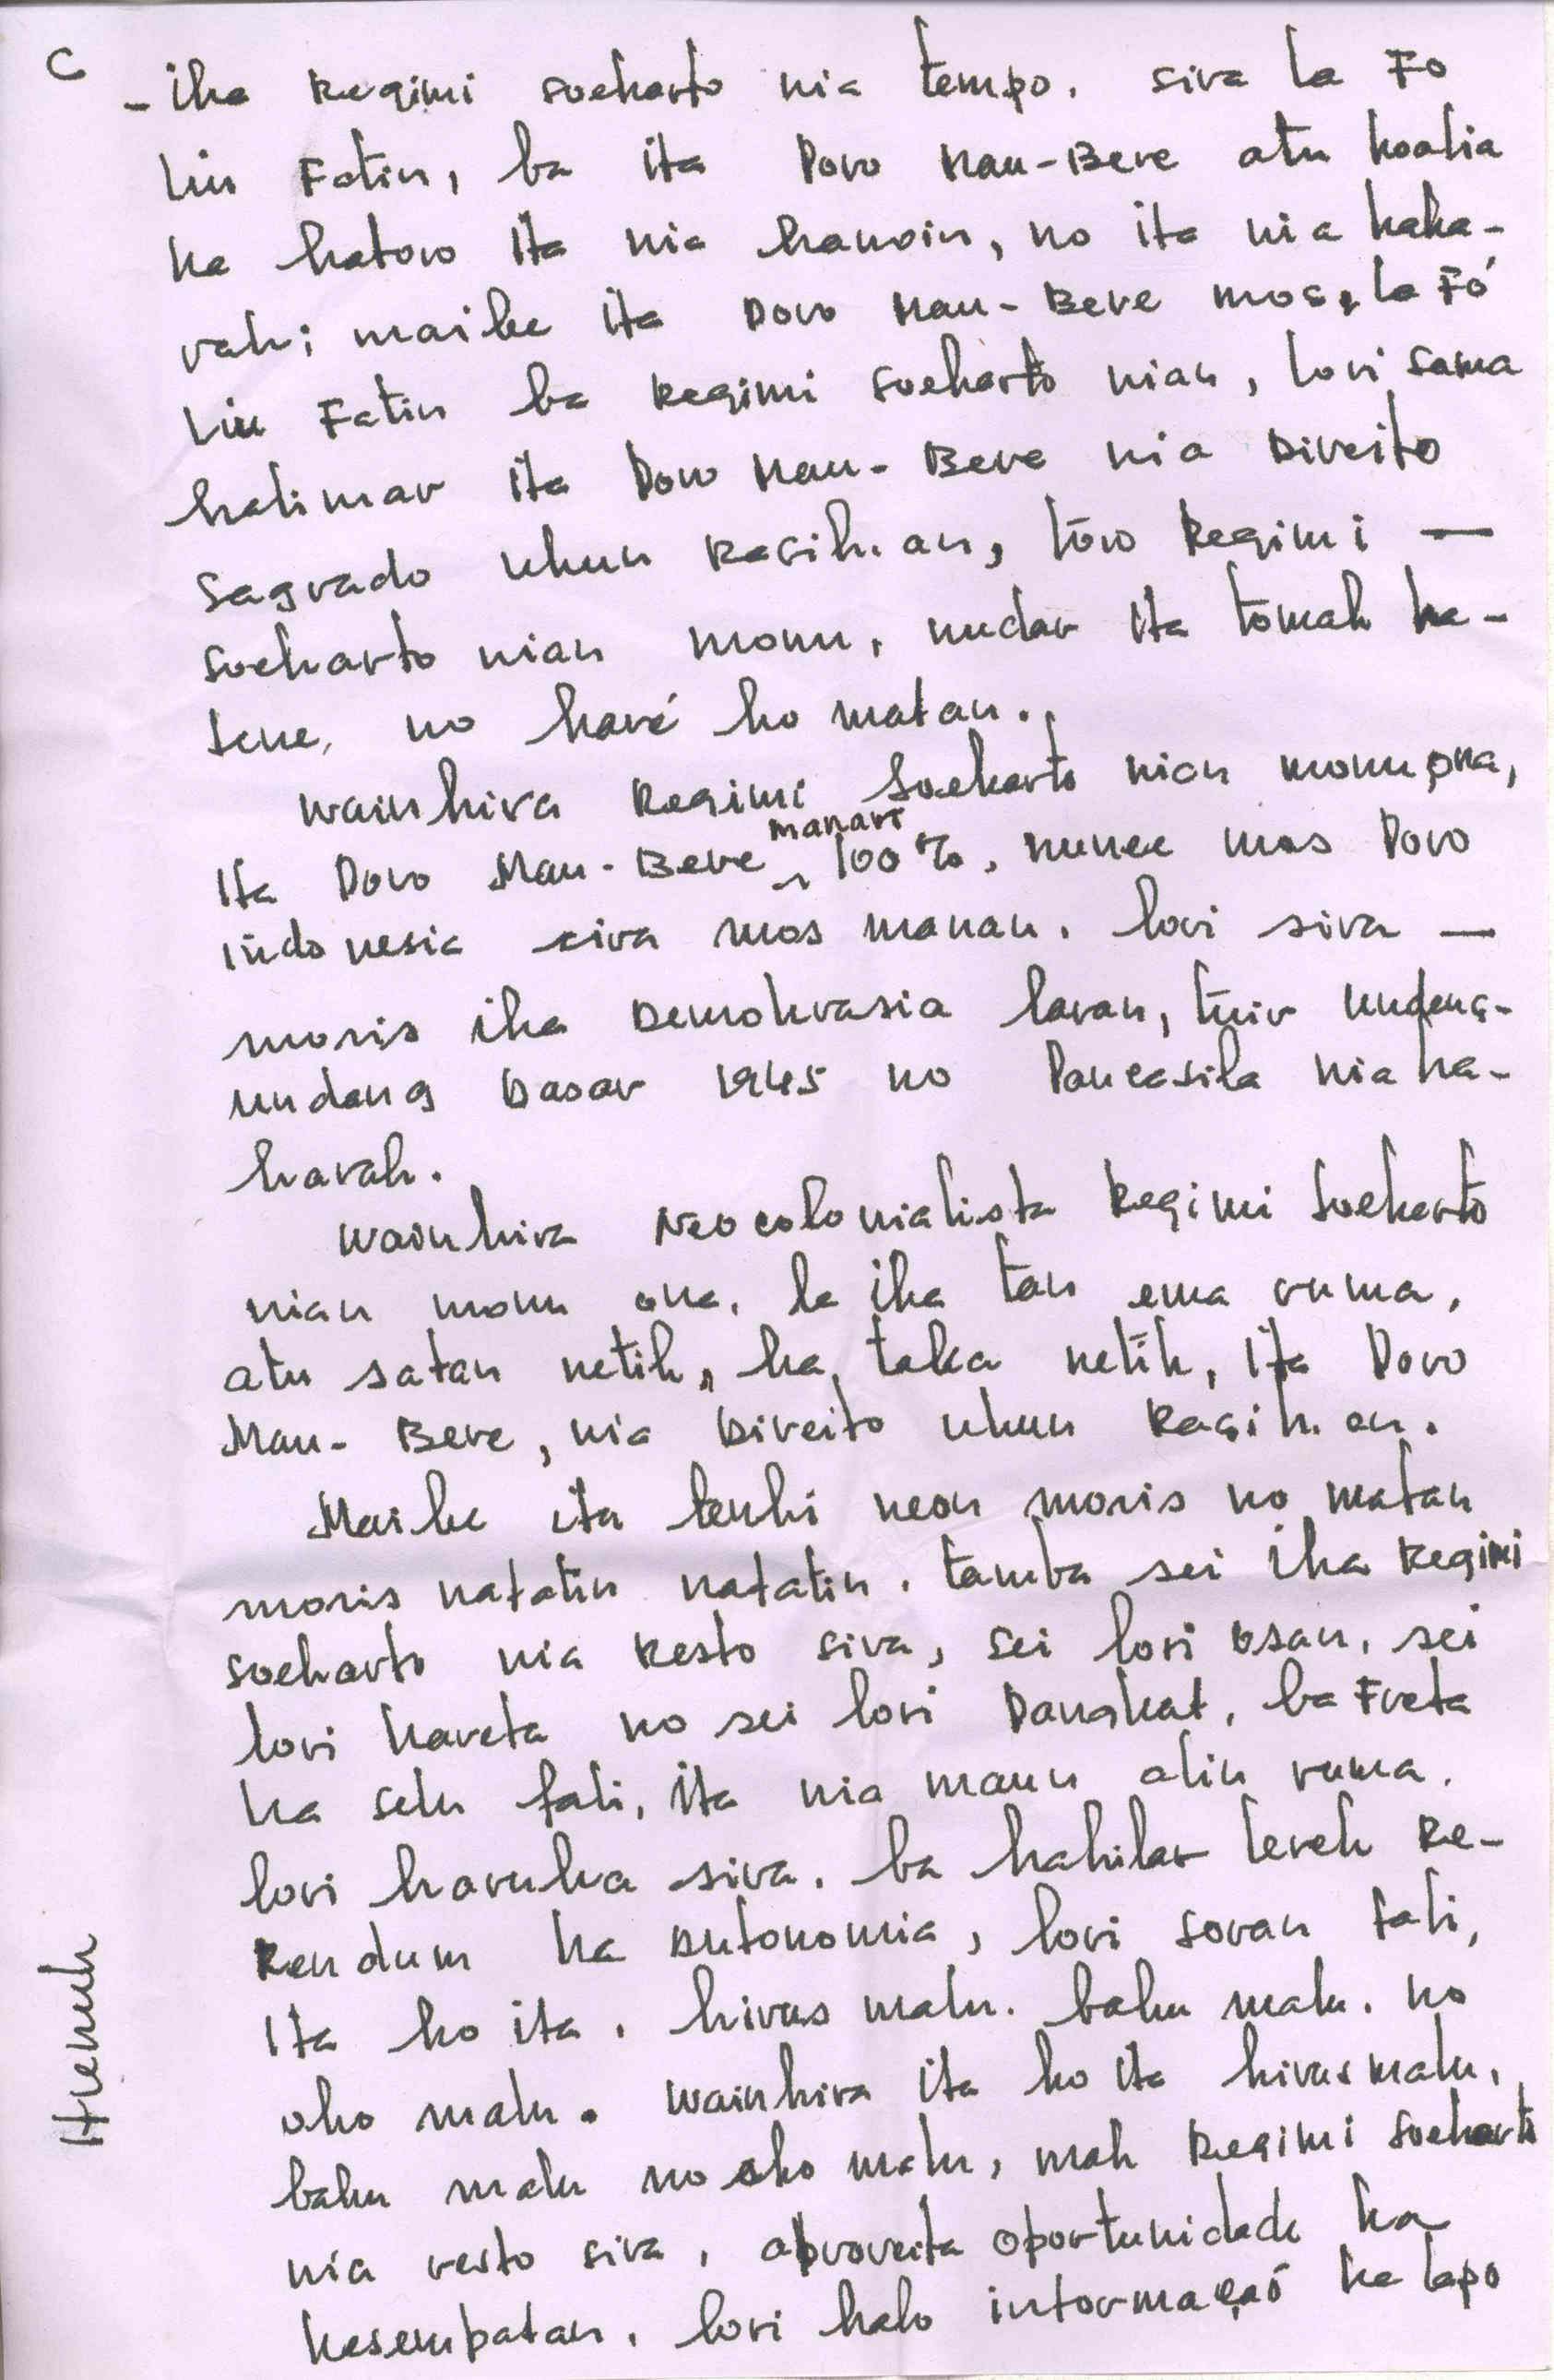 C
- iha Regimi soeharto nia tempo, sira la Fo
liu Fatin, ba ita Povo Mau-Bere atu koalia
ka hatoo ita nia hanoin, no ita nia haka-
rak; maibe ita Povo Mau-Bere mos, la Fó
liu Fatin ba Regimi soeharto nian, lori sama
halimar ita Povo Mau-Bere nia Direito
Sagrado ukun Rasik an, tóo Regimi —
soeharto nian monu, nudar ita tomak ha-
tene, no haré ho matan.
wainhira Regimi Soeharto nian monu ona,
ita Povo Mau-Bere manan 100%, nunee mos Povo
indonesia sira mos manan, lori sira —
moris iha Demokrasia laran, tuir undang-
undang Dasar 1945 no Pancasila nia ha-
karak.
wainhira Neocolonialista Regimi Soeharto
nian monu ona, la iha tan ema ruma,
atu satan netik, ka taka netik, ita Povo
Mau-Bere, nia Direito ukun Rasik an.
Maibe ita tenki neon moris no matan
moris nafatin nafatin, tamba sei iha Regimi
soeharto nia Resto sira, sei lori osan, sei
lori kareta no sei lori Pangkat, ba Freta
ka selu fali, ita nia maun alin ruma,
lori haruka sira, ba hakilar lerek Re-
Rendum ka Autonomia, lori soran fali,
ita ho ita, hirus malu, baku malu, no
oho malu. wainhira ita ho ita hirus malu,
baku malu no oho malu, mak Regimi soeharto
nia resto sira, aproveita oportunidade ka
kesempatan, lori halo informaçaó ka lapo
Hienuh